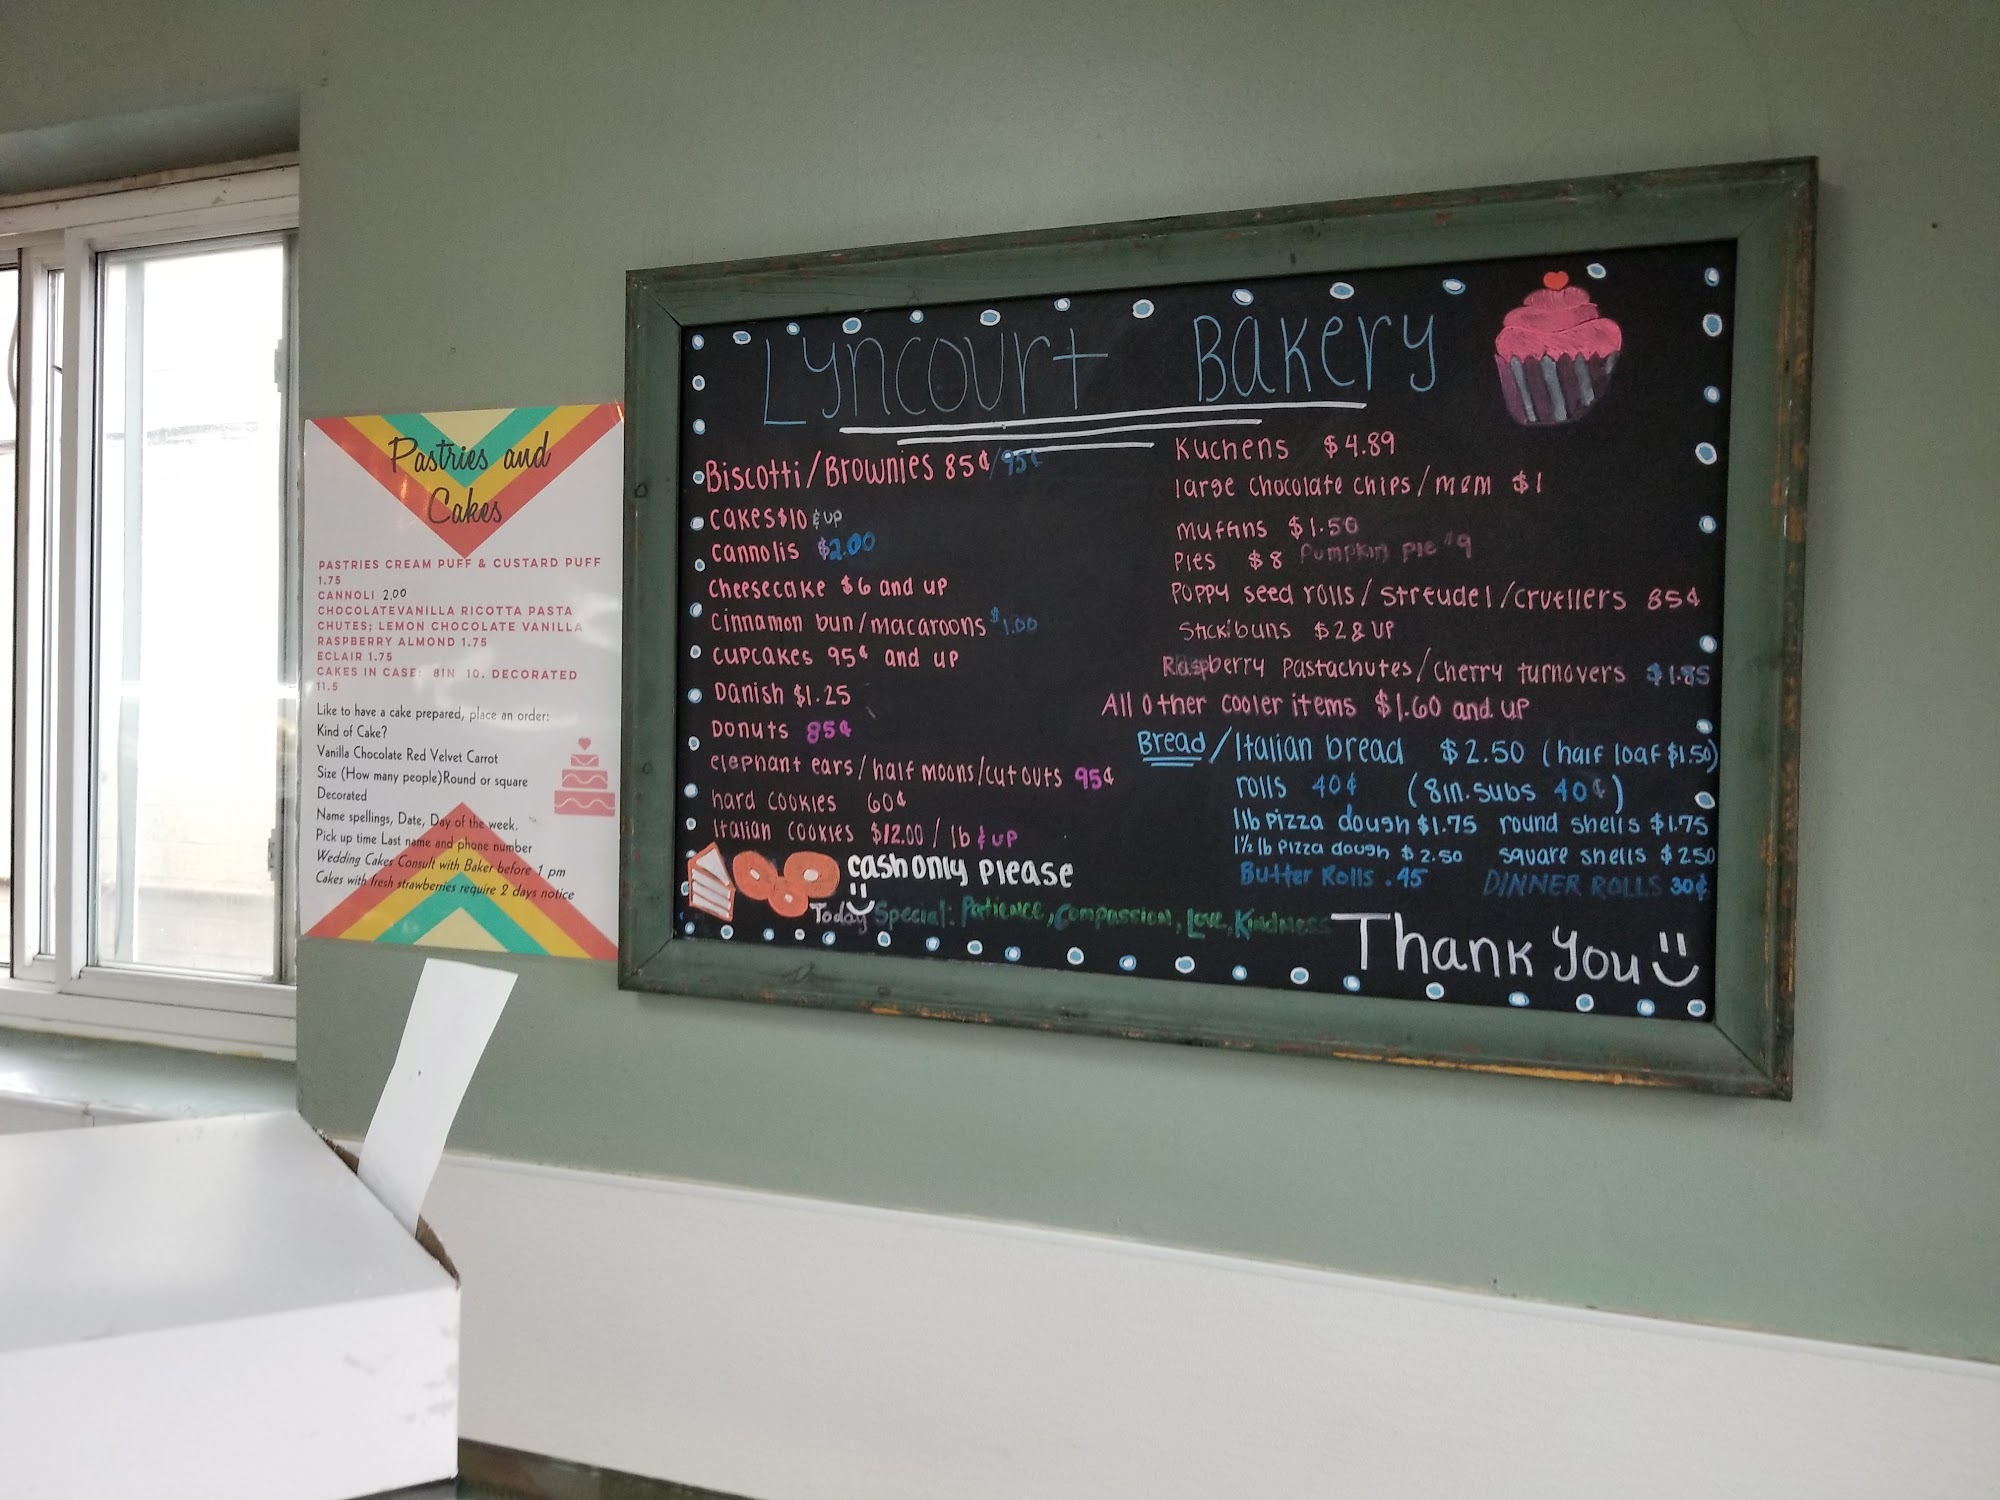 Pastries and
Cakes
PASTRIES CREAM PUFF & CUSTARD PUFF
1.75
CANNOLI 2.00
CHOCOLATEVANILLA RICOTTA PASTA
CHUTES; LEMON CHOCOLATE VANILLA
RASPBERRY ALMOND 1.75
ECLAIR 1.75
CAKES IN CASE: 8IN 10. DECORATED
11.5
Like to have a cake prepared, place an order:
Kind of Cake?
Vanilla Chocolate Red Velvet Carrot
Size (How many people)Round or square
Decorated
Name spellings, Date, Day of the week.
Pick up time Last name and phone number
Wedding Cakes Consult with Baker before 1 pm
Cakes with fresh strawberries require 2 days notice
Lyncourt Bakery
Biscotti/Brownies 85¢/95¢
cakes $10 & up
cannolis $2.00
cheesecake $6 and up
cinnamon bun/macaroons $1.00
cupcakes 95¢ and up
Danish $1.25
Donuts 85¢
elephant ears/half moons/cutouts 95¢
hard cookies 60¢
Italian cookies $12.00/lb & up
cash only please
Today Special: Patience, Compassion, Love, Kindness
Kuchens $4.89
large chocolate chips/m&m $1
muffins $1.50
Pies $8 Pumpkin pie $9
Poppy seed rolls/streudel/cruellers 85¢
Stickibuns $2 & UP
Raspberry Pastachutes/cherry turnovers $1.85
All other cooler items $1.60 and up
Bread/Italian bread $2.50 (half loaf $1.50)
rolls 40¢ (8in. subs 40¢)
1lb pizza dough $1.75 round shells $1.75
1½ lb pizza dough $2.50 square shells $2.50
Butter Rolls .45 DINNER ROLLS 30¢
Thank You